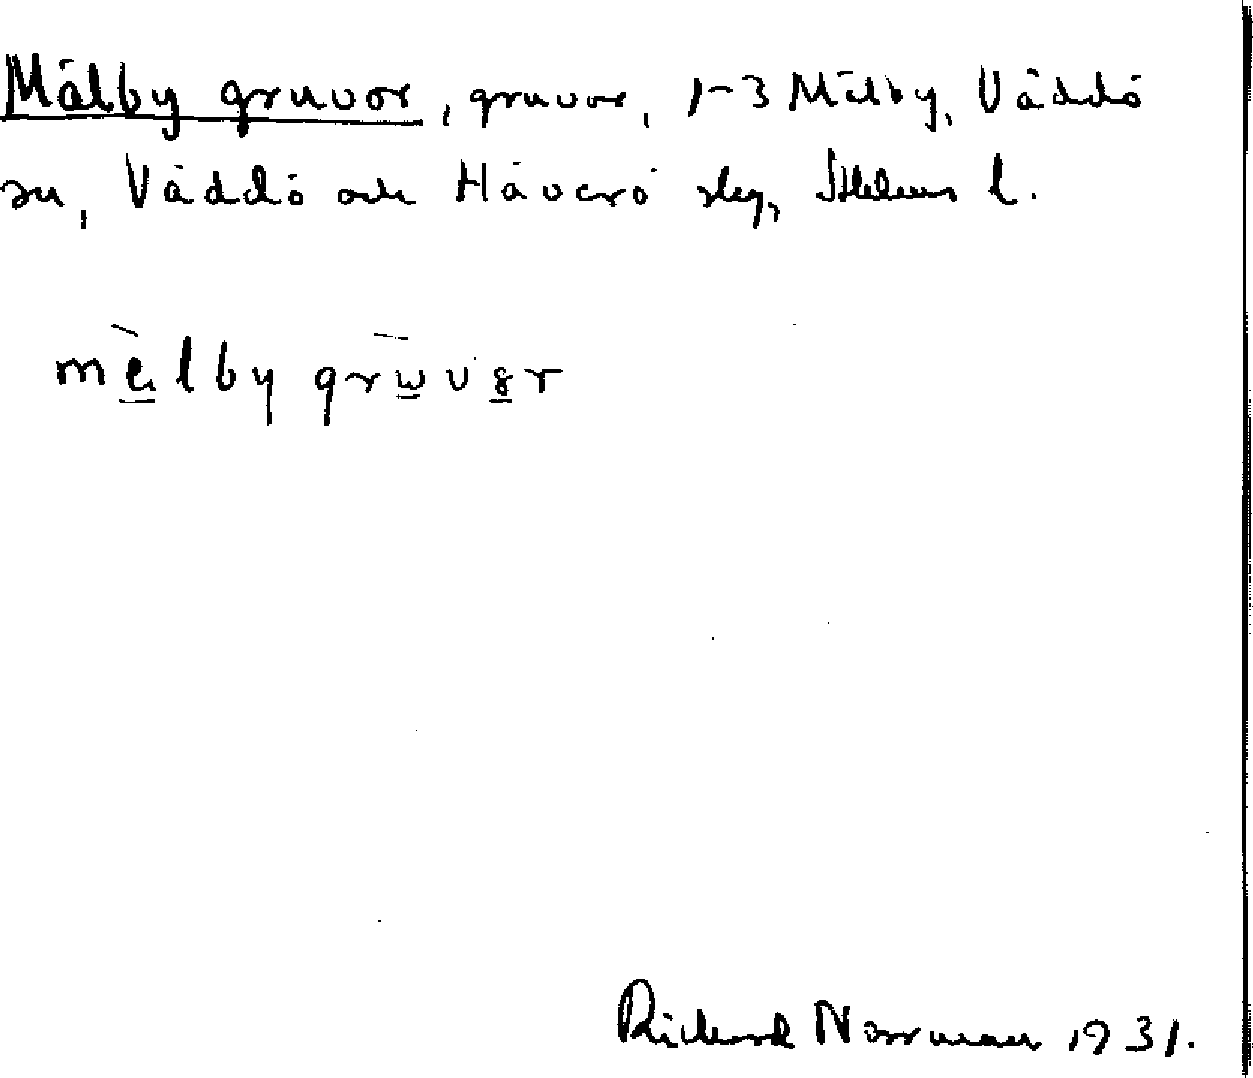 Mälby gruvor, gruvor, 1-3 Mälby, Väddö
sn, Väddö och Häverö skg, Sthlms l.
mèlby grùvər
Richard Norrman 1931.